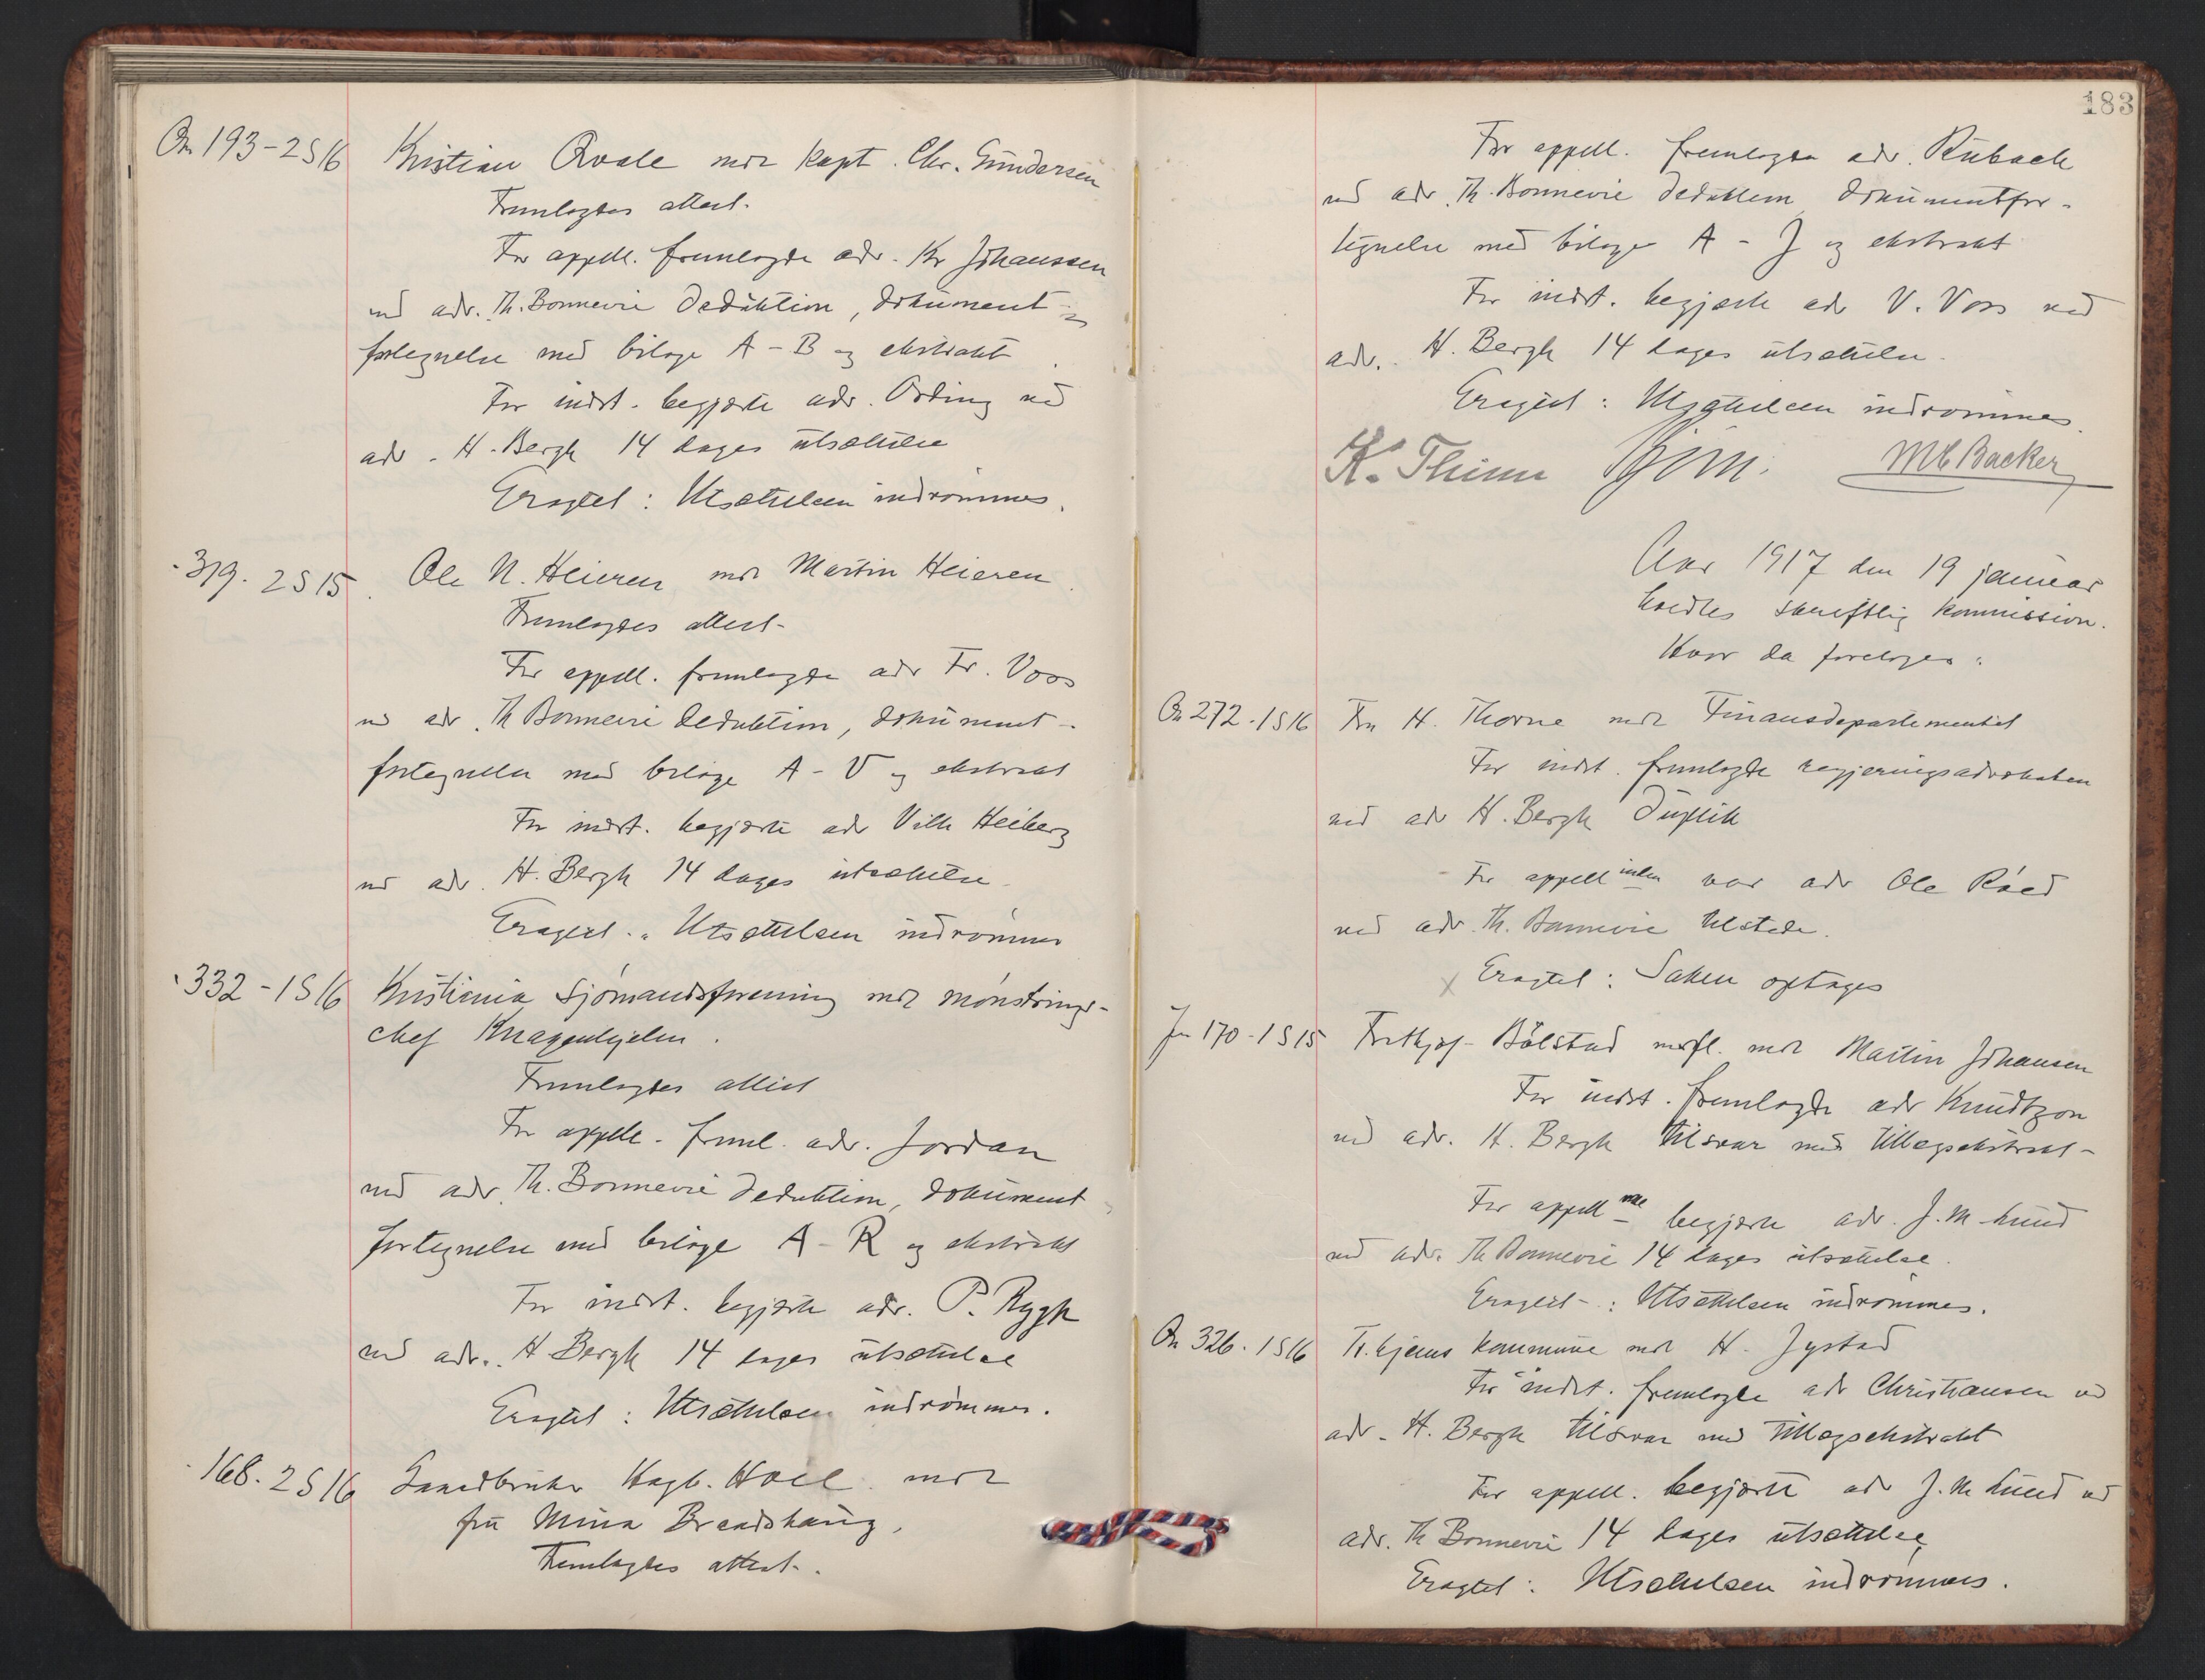 On 193-2S16 Kristian Qvale mot kapt. Chr. Gundersen
Fremlagdes attest.
For appell. fremlagde adv. Kr Johanssen
ved adv. Th. Bonnevie deduktion, dokument-
fortegnelse med bilage A-B og ekstrakt
For indst. begjærte adv. Ording ved
adv. H. Bergh 14 dages utsættelse
Eragtet: Utsættelsen indrømmes.
" 319. 2S15. Ole N. Heieren mot Martin Heieren
Fremlagdes attest.
For appell. fremlagde adv Fr. Voss
ved adv. Th Bonnevie deduktion, dokument-
fortegnelse med bilage A-V og ekstrakt
For indst. begjærte adv Vilh Heiberg
ved adv. H. Bergh 14 dages utsættelse
Eragtet: Utsættelsen indrømmes
" 332-1S16 Kristiania Sjømandsforening mot mønstrings-
chef Knagenhjelm.
Fremlagdes attest
For appell. freml. adv. Jordan
ved adv. Th. Bonnevie deduktion, dokument
fortegnelse med bilage A-R og ekstrakt
For indst. begjærte adv. P. Rygh
ved adv. H Bergh 14 dages utsættelse
Eragtet: Utsættelsen indrømmes.
" 168. 2S16 Hagb. Holl mot
fru Mina
Fremlagdes attest.
183
For appell. fremlagde adv. Rubach
ved adv. Th. Bonnevie deduktion, dokumentfor-
tegnelse med bilage A-J og ekstrakt
For indst. begjærte adv V. Voss ved
adv. H. Bergh 14 dages utsættelse.
Eragtet: Utsættelsen indrømmes.
K. Thinn MC Backer
Aar 1917 den 19 januar
holdtes skriftlig kommission.
Hvor da foretoges:
On 272. 1S16 Fru H. Thorne mot Finansdepartementet
For indst. fremlagde regjeringsadvokaten
ved adv H. Bergh duplik
For appellinden var adv Ole Røed
ved adv. Th. Bonnevie tilstede.
x Eragtet: Saken optages
Jn 170-1S15 Frithjof Bølstad mfl. mot Martin Johansen
For indst. fremlagde adv Knudtzon
ved adv. H. Bergh tilsvar med tillægsekstrakt-
For appellne begjærte adv. J. M Lund
ved adv. Th Bonnevie 14 dages utsættelse.
Eragtet: Utsættelsen indrømmes.
On 326. 1S16 Tr.hjems kommune mot H. Jystad
For indst. fremlagde adv Christiansen ved
adv. H. Bergh tilsvar med tillægsekstrakt
For appell. begjærte adv J. M Lund ved
adv. Th Bonnevie 14 dages utsættelse
Eragtet: Utsættelsen indrømmes.